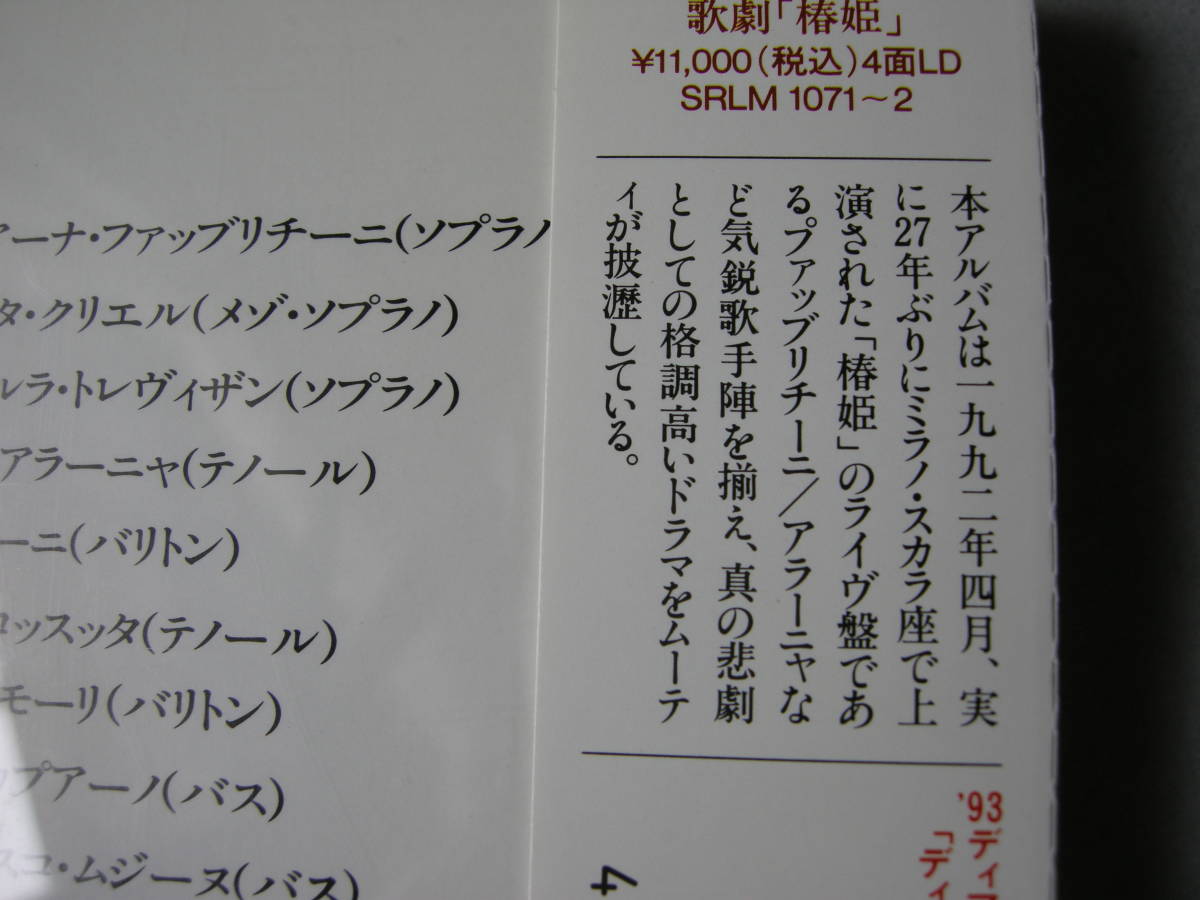 歌劇「椿姫」
¥11,000(税込)4面LD
SRLM 1071~2
本アルバムは一九九二年四月、実
に27年ぶりにミラノ・スカラ座で上
演された「椿姫」のライヴ盤であ
る。ファッブリチーニ/アラーニャな
ど気鋭歌手陣を揃え、真の悲劇
としての格調高いドラマをムーテ
ィが披瀝している。
'93ディ
「ディ
4
アーナ・ファッブリチーニ(ソプラノ
タ・クリエル(メゾ・ソプラノ)
ルラ・トレヴィザン(ソプラノ)
アラーニャ(テノール)
ーニ(バリトン)
ロッスッタ(テノール)
モーリ(バリトン)
プアーノ(バス)
スコ・ムジーヌ(バス)